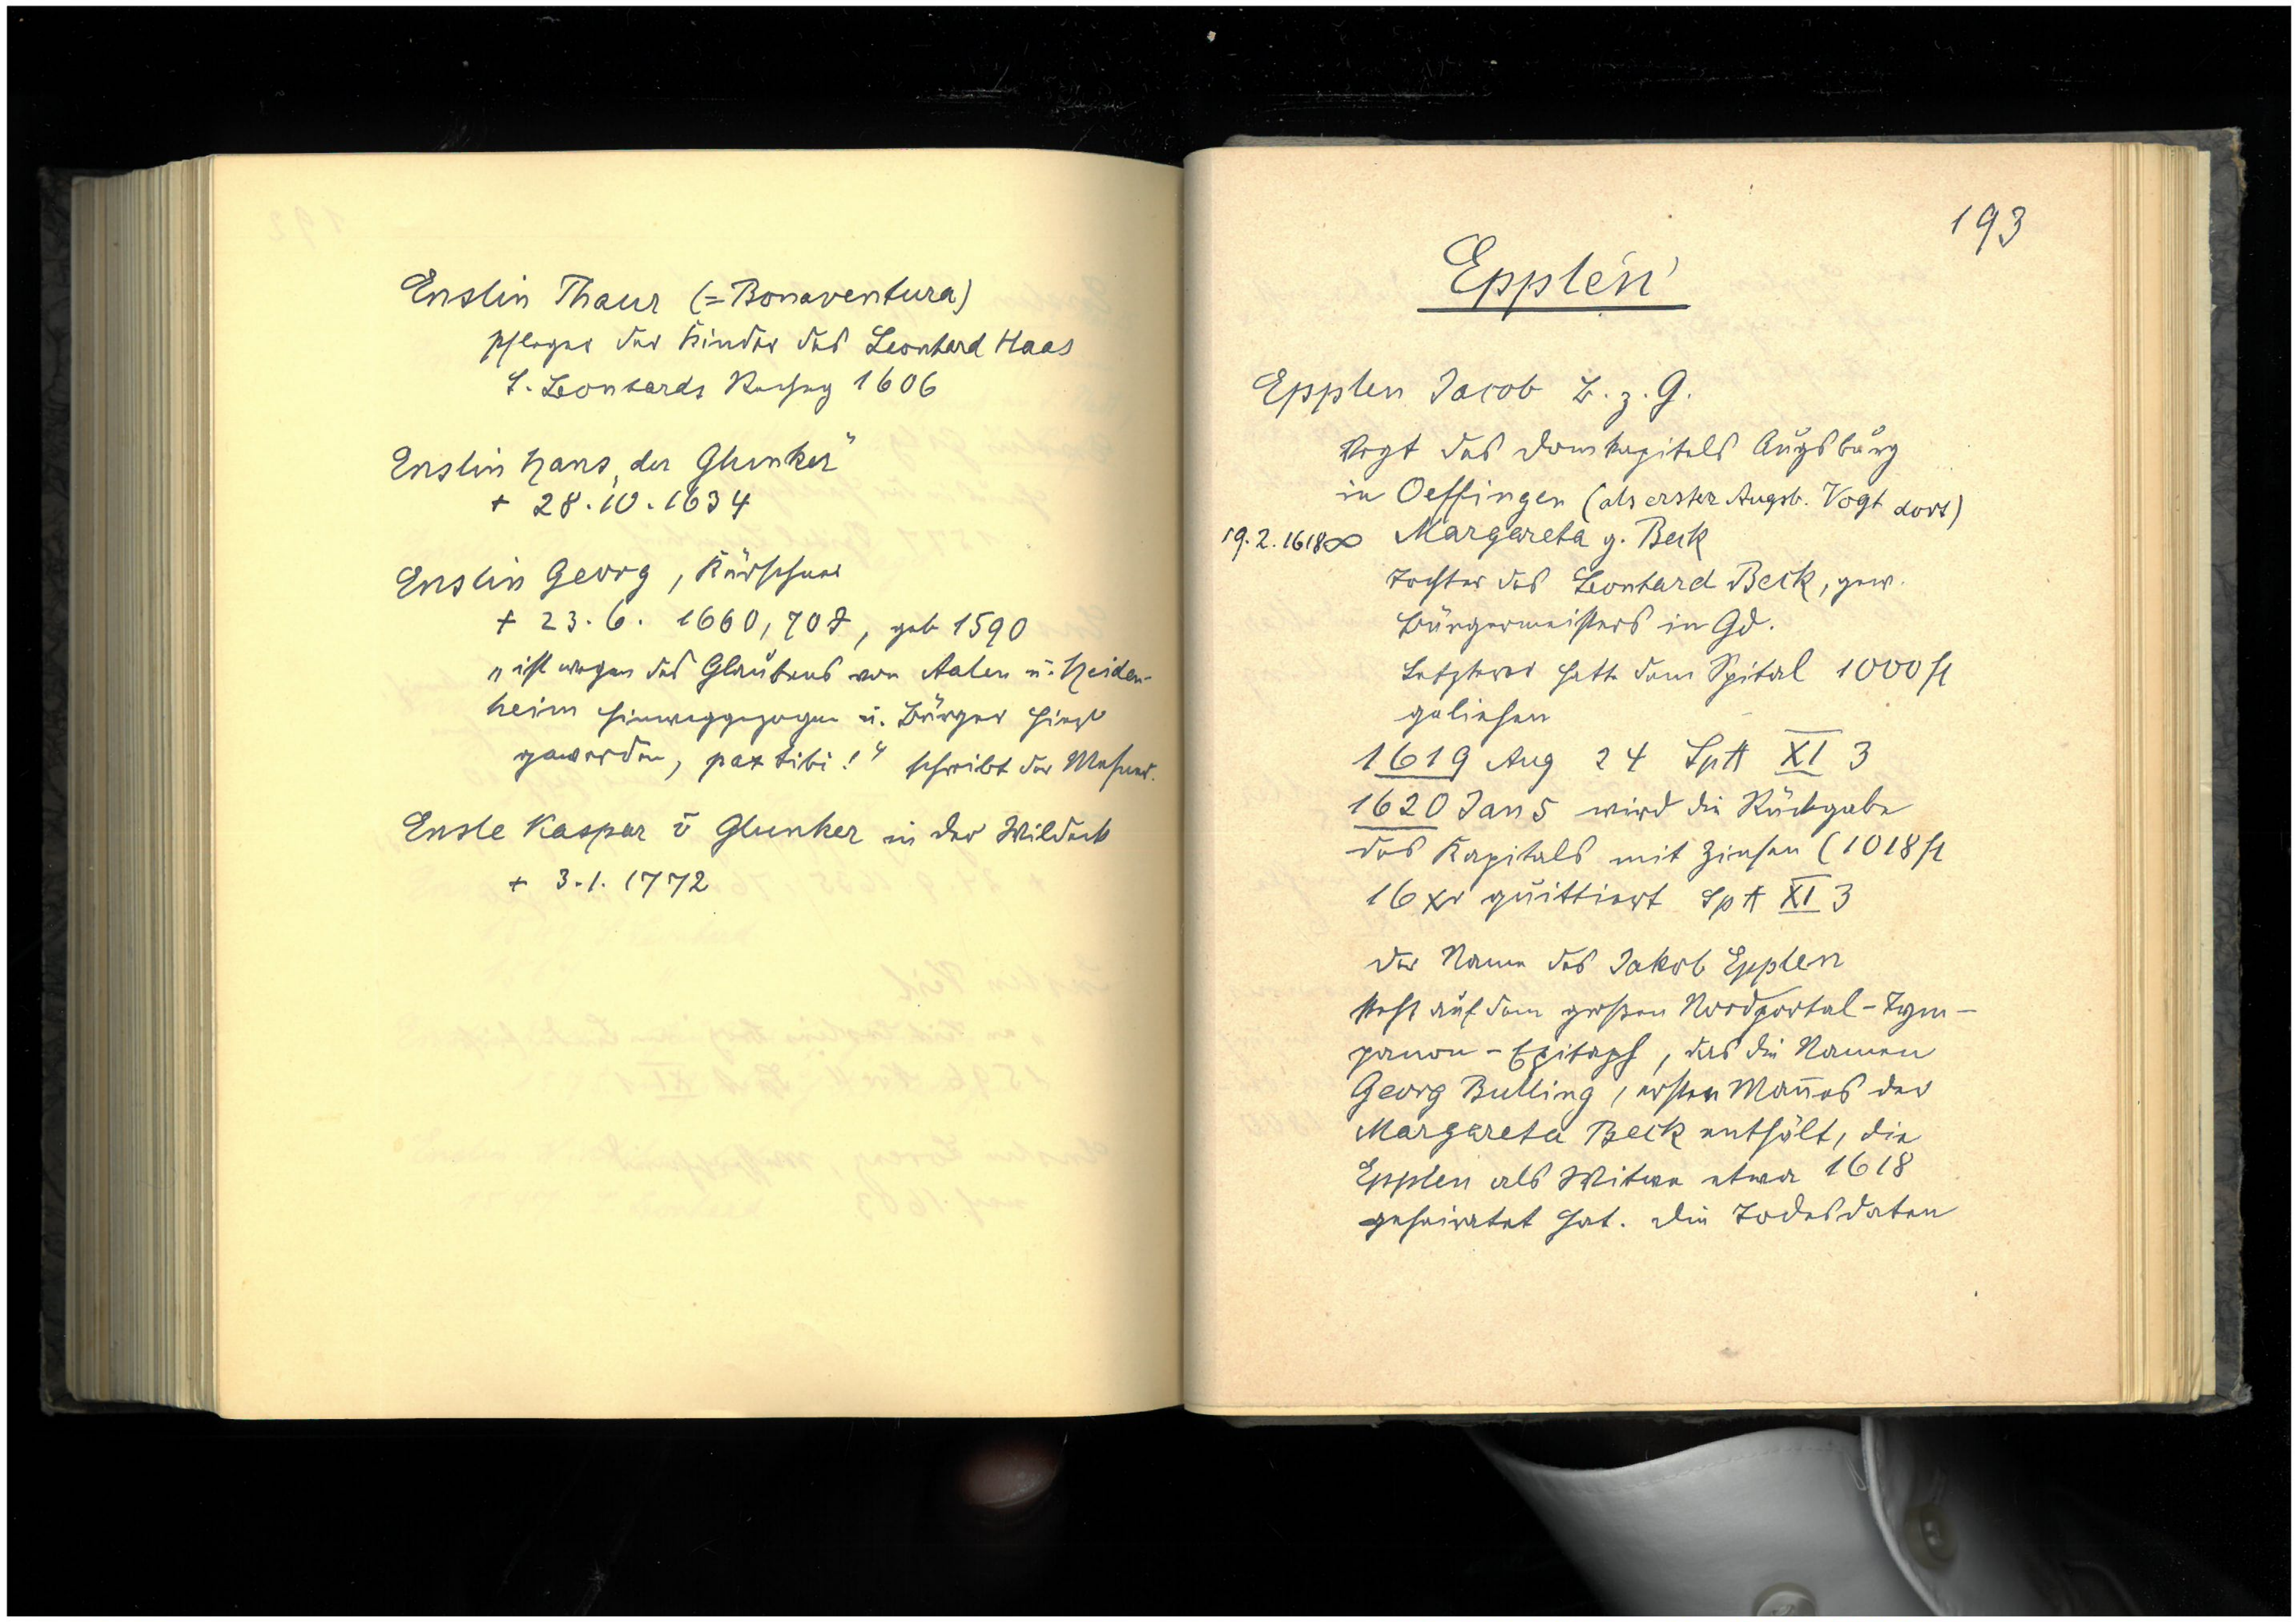 Enslin Thaur (= Bonaventura)
Pfleger der Kinder des Leonhard Haas
S. Leonhards Rechng 1606
Enslin Hans „der Glunker"
+ 28.10.1634
Enslin Georg, Kürschner
+ 23.6. 1660, 70 J, geb 1590
„ist wegen des Glaubens von Aalen u. Heiden-
heim hinweggezogen u. Bürger hier
geworden, pax tibi!" schreibt der Mesner.
Ensle Kaspar v Glunker in der Wildeck
+ 3.1. 1772
193
Epplen
Epplen Jacob B. z. G.
Vogt des Domkapitels Augsburg
in Oeffingen (als erster Augsb. Vogt dort)
19.2.1618 ∞ Margareta g. Beck
Tochter des Leonhard Beck, gew.
Bürgermeisters in Gd.
Letzterer hatte dem Spital 1000 fl
geliehen
1619 Aug 24 SpA XI 3
1620 Jan 5 wird die Rückgabe
des Kapitals mit Zinsen (1018 fl
16 xr quittiert SpA XI 3
Der Name des Jakob Epplen
steht auf dem großen Nordportal-Tym-
panon-Epitaph, das die Namen
Georg Bulling, ersten Mañes der
Margareta Beck enthält, die
Epplen als Witwe etwa 1618
geheiratet hat. Die Todesdaten